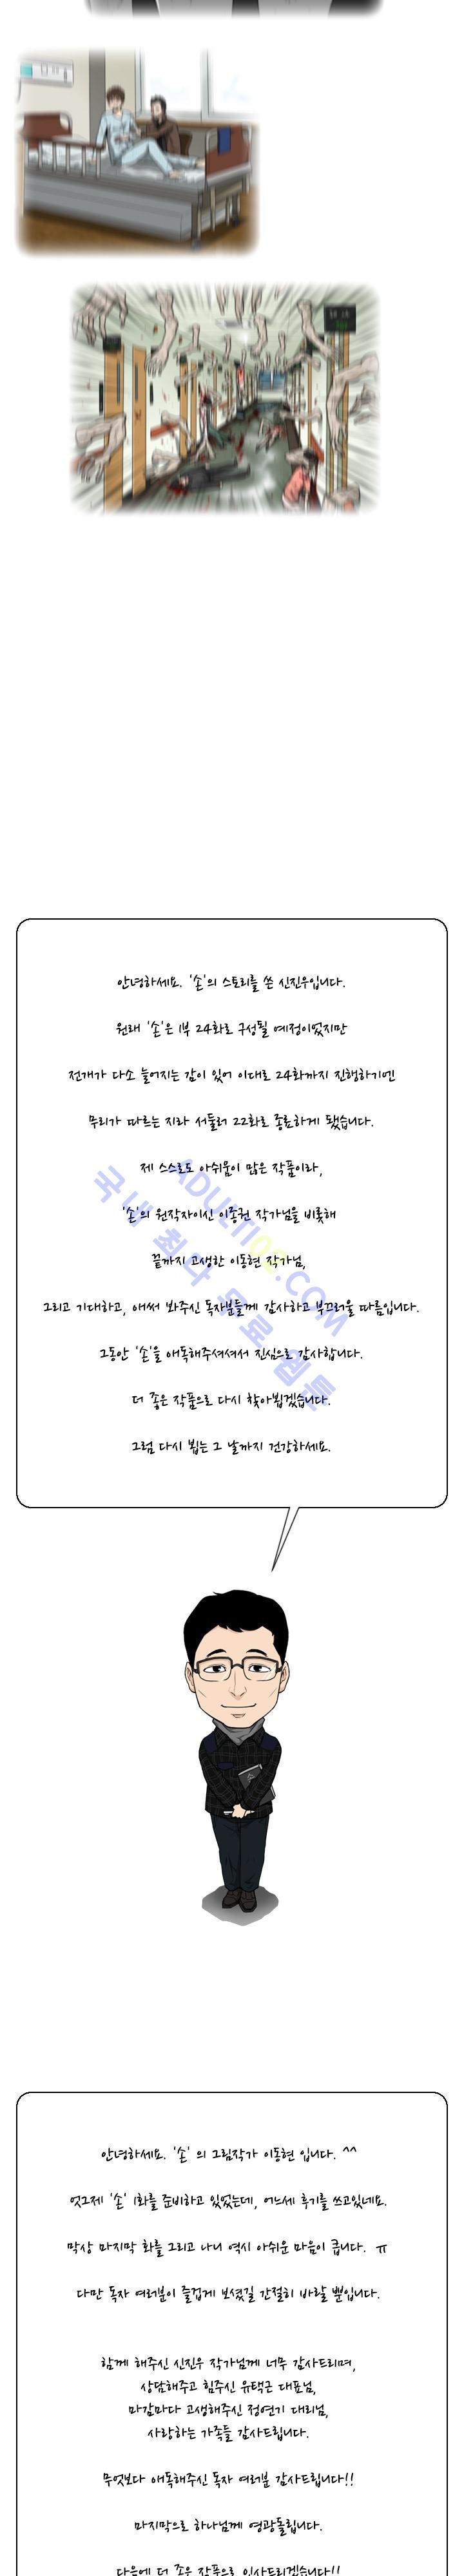 안녕하세요. '손'의 스토리를 쓴 신진우입니다.
원래 '손'은 1부 24화로 구성될 예정이었지만
전개가 다소 늘어지는 감이 있어 이대로 24화까지 진행하기엔
무리가 따르는 지라 서둘러 22화로 종료하게 됐습니다.
제 스스로도 아쉬움이 많은 작품이라,
'손'의 원작자이신 이종권 작가님을 비롯해
끝까지 고생한 이동현 작가님,
그리고 기대하고, 애써 봐주신 독자분들께 감사하고 부끄러울 따름입니다.
그동안 '손'을 애독해주셔셔서 진심으로 감사합니다.
더 좋은 작품으로 다시 찾아뵙겠습니다.
그럼 다시 뵙는 그 날까지 건강하세요.
ADULTI02.COM
국내 최다 무료 웹툰
안녕하세요. '손' 의 그림작가 이동현 입니다. ^^
엊그제 '손' 1화를 준비하고 있었는데, 어느세 후기를 쓰고있네요.
막상 마지막 화를 그리고 나니 역시 아쉬운 마음이 큽니다. ㅠ
다만 독자 여러분이 즐겁게 보셨길 간절히 바랄 뿐입니다.
함께 해주신 신진우 작가님께 너무 감사드리며,
상담해주고 힘주신 유택근 대표님,
마감마다 고생해주신 정연기 대리님,
사랑하는 가족들 감사드립니다.
무엇보다 애독해주신 독자 여러분 감사드립니다!!
마지막으로 하나님께 영광돌립니다.
다음에 더 좋은 작품으로 인사드리겠습니다!!